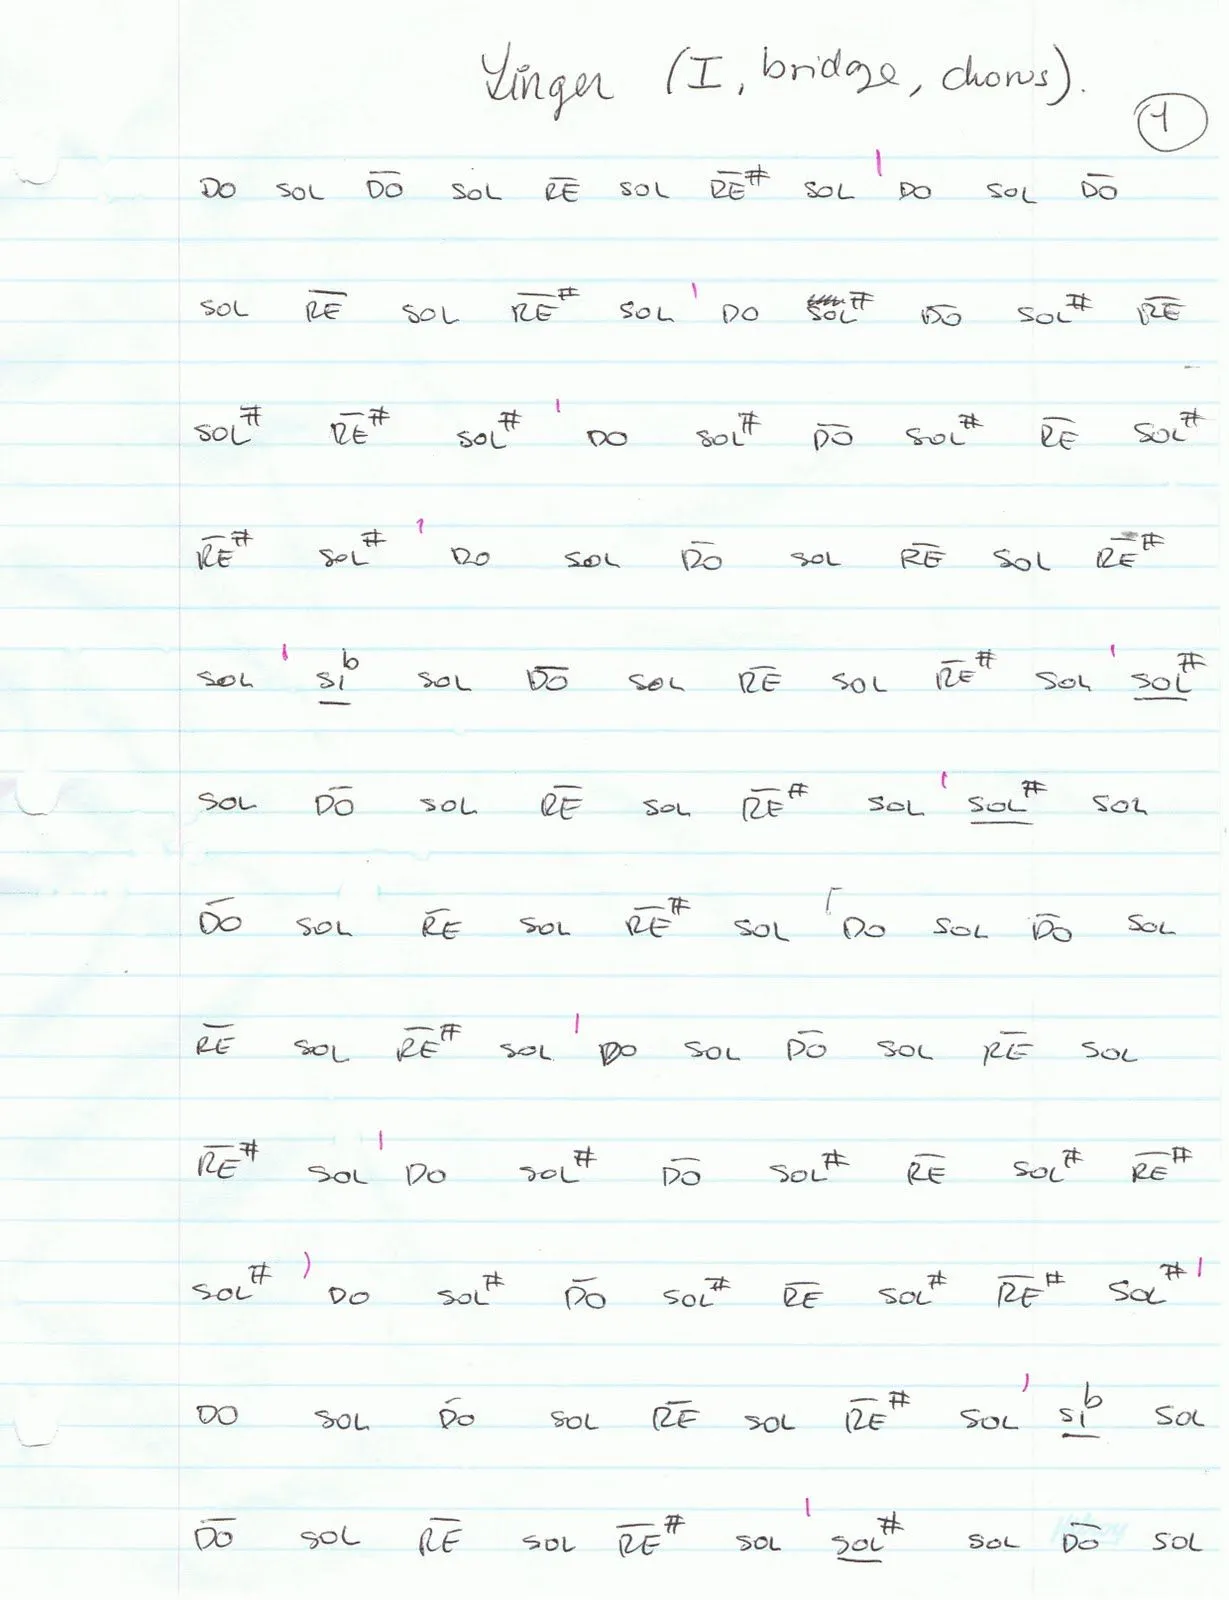 Linger (I, bridge, chorus).
1
DO SOL D̅O̅ SOL R̅E̅ SOL R̅E̅# SOL ' DO SOL D̅O̅
SOL R̅E̅ SOL R̅E̅# SOL ' DO SOL# D̅O̅ SOL# R̅E̅
SOL# R̅E̅# SOL# ' DO SOL# D̅O̅ SOL# R̅E̅ SOL#
R̅E̅# SOL# ' DO SOL D̅O̅ SOL R̅E̅ SOL R̅E̅#
SOL ' S̲I̲b SOL D̅O̅ SOL R̅E̅ SOL R̅E̅# SOL ' S̲O̲L̲#
SOL D̅O̅ SOL R̅E̅ SOL R̅E̅# SOL ' S̲O̲L̲# SOL
D̅O̅ SOL R̅E̅ SOL R̅E̅# SOL ' DO SOL D̅O̅ SOL
R̅E̅ SOL R̅E̅# SOL ' DO SOL D̅O̅ SOL R̅E̅ SOL
R̅E̅# SOL ' DO SOL# D̅O̅ SOL# R̅E̅ SOL# R̅E̅#
SOL# ' DO SOL# D̅O̅ SOL# R̅E̅ SOL# R̅E̅# SOL# '
DO SOL D̅O̅ SOL R̅E̅ SOL R̅E̅# SOL ' S̲I̲b SOL
D̅O̅ SOL R̅E̅ SOL R̅E̅# SOL ' S̲O̲L̲# SOL D̅O̅ SOL